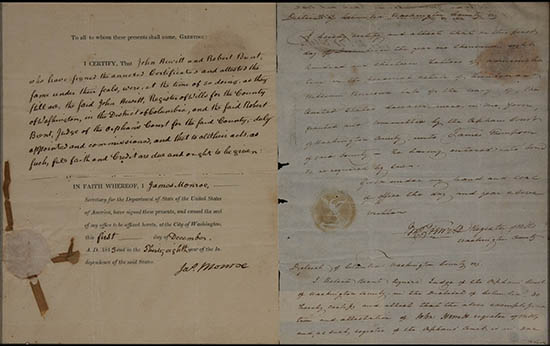 To all to whom these presents shall come, GREETING:
I CERTIFY, That John Hewitt and Robert Brent,
who have signed the annexed Certificates and attested the
same under their seals, were, at the time of so doing, as they
still are, the said John Hewitt, Register of Wills for the County
of Washington, in the District of Columbia, and the said Robert
Brent, Judge of the Orphan's Court for the said County, duly
appointed and commissioned, and that to all their acts, as
such, full faith and Credit are due and ought to be given:
IN FAITH WHEREOF, I James Monroe,
Secretary for the Department of State of the United
States of America, have signed these presents, and caused the seal
of my office to be affixed hereto, at the City of Washington,
this first day of December
A. D. 181 and in the Thirty eighth year of the In-
dependence of the said States.
Jas. Monroe
District of Columbia Washington County, ss.
I hereby certify and attest that on this first
day of in the year one thousand eight
hundred and thirteen letters of administration
United States was in due form
granted and committed by the Orphans Court of
Washington County, unto James Thompson
of said County he having entered into bond
as required by law.
Given under my hand and seal
of office the day and year above
written
Register of Wills
Washington County
District of Columbia Washington County, ss.
I Robert Brent Judge of the Orphans Court
of Washington County in the District of Columbia, do
hereby certify and attest that the above
and attestation of John Hewitt register of wills
and as such, register of the Orphans Court is in due